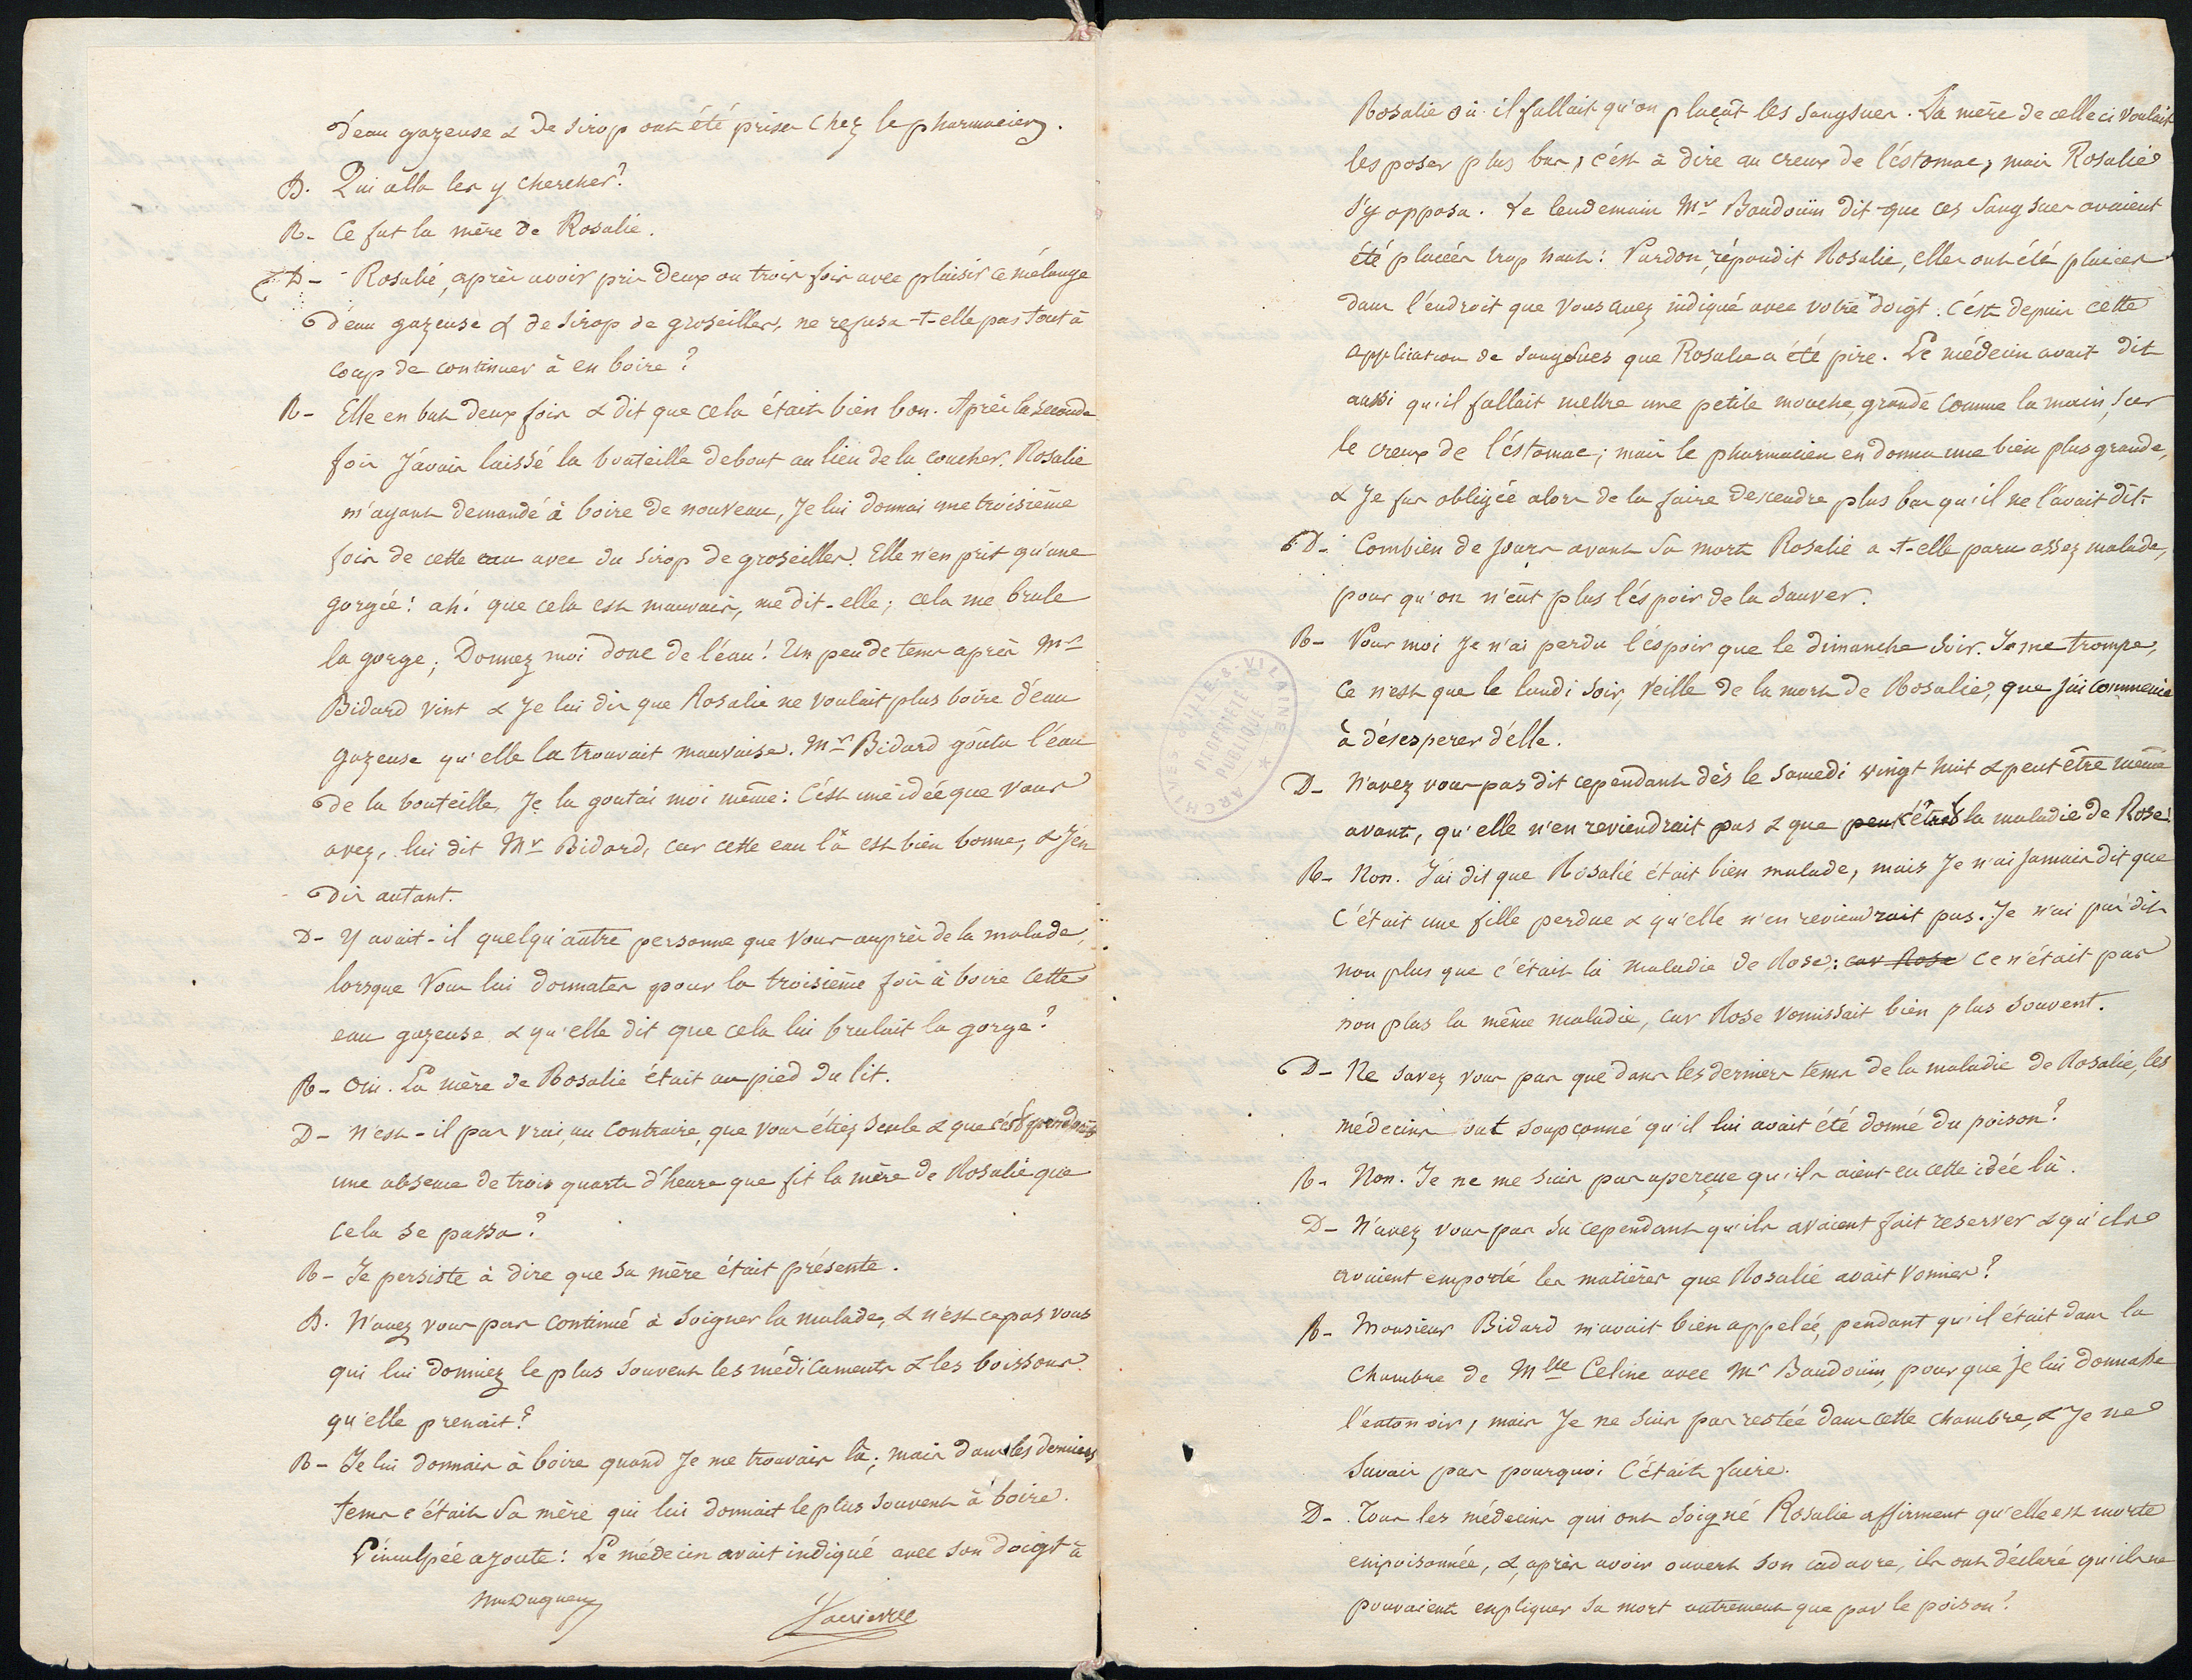 d'eau gazeuse & de sirop ont été prises chez le pharmacien.
D. Qui alla les y chercher?
R- Ce fut la mère de Rosalie.
D- Rosalie, après avoir pris deux ou trois fois avec plaisir ce mélange
d'eau gazeuse & de sirop de groseilles, ne refusa-t-elle pas tout à
coup de continuer à en boire?
R- Elle en but deux fois & dit que cela était bien bon. Après la seconde
fois j'avais laissé la bouteille debout au lieu de la coucher. Rosalie
m'ayant demandé à boire de nouveau, je lui donnai une troisième
fois de cette eau avec du sirop de groseilles. Elle n'en prit qu'une
gorgée: ah! que cela est mauvais, me dit-elle; cela me brule
la gorge; Donnez moi donc de l'eau! Un peu de tems après Mr
Bidard vint & je lui dis que Rosalie ne voulait plus boire d'eau
gazeuse qu'elle la trouvait mauvaise. Mr Bidard goûta l'eau
de la bouteille, je la goutai moi même: C'est une idée que vous
avez, lui dit Mr Bidard, car cette eau là est bien bonne, & j'en
dis autant.
D- Y avait-il quelqu'autre personne que vous auprès de la malade,
lorsque vous lui donnates pour la troisième fois à boire cette
eau gazeuse & qu'elle dit que cela lui brulait la gorge?
R- Oui. La mère de Rosalie était au pied du lit.
D- N'est-il pas vrai, au contraire, que vous étiez seule & que c'est pendant
une absence de trois quarts d'heure que fit la mère de Rosalie que
cela se passa?
R- Je persiste à dire que sa mère était présente.
D. N'avez vous pas continué à soigner la malade, & n'est ce pas vous
qui lui donniez le plus souvent les médicaments & les boissons
qu'elle prenait?
R- Je lui donnais à boire quand je me trouvais là; mais dans les derniers
tems c'était sa mère qui lui donnait le plus souvent à boire.
L'inculpée ajoute: Le médecin avait indiqué avec son doigt à
Rosalie où il fallait qu'on plaçât les sangsues. La mère de celle ci voulait
les poser plus bas, c'est à dire au creux de l'éstomac, mais Rosalie
s'y opposa. Le lendemain Mr Baudouin dit que ces sangsues avaient
été placées trop haut: Pardon, répondit Rosalie, elles ont été placées
dans l'endroit que vous avez indiqué avec votre doigt. C'est depuis cette
application de sangsues que Rosalie a été pire. Le médecin avait dit
aussi qu'il fallait mettre une petite mouche, grande comme la main, sur
le creux de l'éstomac; mais le pharmacien en donna une bien plus grande,
& je fus obligée alors de la faire descendre plus bas qu'il ne l'avait dit.
D- Combien de jours avant sa mort Rosalie a-t-elle paru assez malade,
pour qu'on n'eut plus l'éspoir de la sauver.
R- Pour moi je n'ai perdu l'éspoir que le dimanche soir. Je me trompe,
ce n'est que le lundi soir, veille de la mort de Rosalie, que j'ai commencé
à désesperer d'elle.
D- N'avez vous pas dit cependant dès le samedi vingt huit & peut être même
avant, qu'elle n'en reviendrait pas & que peut c'était la maladie de Rose?
R- Non. J'ai dit que Rosalie était bien malade, mais je n'ai jamais dit que
c'était une fille perdue & qu'elle n'en reviendrait pas. Je n'ai pas dit
non plus que c'était la maladie de Rose; car Rose ce n'était pas
non plus la même maladie, car Rose vomissait bien plus souvent.
D- Ne savez vous pas que dans les derniers tems de la maladie de Rosalie, les
médecins ont soupçonné qu'il lui avait été donné du poison?
R- Non. Je ne me suis pas aperçue qu'ils aient eu cette idée là.
D- N'avez vous pas su cependant qu'ils avaient fait reserver & qu'ils
avaient emporté les matières que Rosalie avait vomies?
R- Monsieur Bidard m'avait bien appelée, pendant qu'il était dans la
chambre de Mlle Celine avec Mr Baudouin, pour que je lui donnasse
l'entonoir, mais je ne suis pas restée dans cette chambre, & je ne
savais pas pourquoi c'était faire.
D- Tous les médecins qui ont soigné Rosalie affirment qu'elle est morte
empoisonnée, & après avoir ouvert son cadavre, ils ont déclaré qu'ils ne
pouvaient expliquer sa mort autrement que par le poison?
ARCHIVES D'ILLE-&-VILAINE
PROPRIÉTÉ
PUBLIQUE